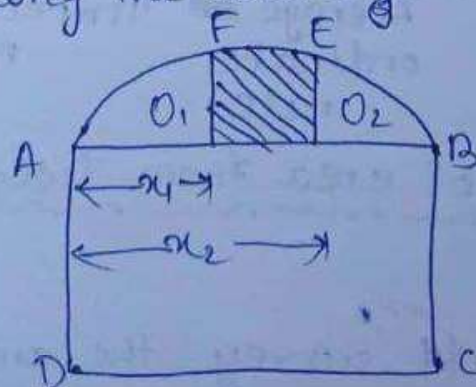 F E
O₁ O₂
A B
x₁
x₂
D C